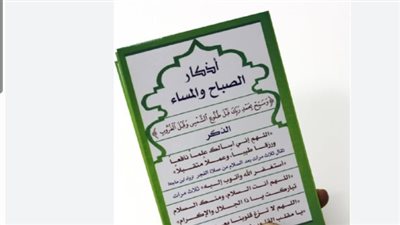 أذكار
الصباح والمساء
﴿وَسَبِّحْ بِحَمْدِ رَبِّكَ قَبْلَ طُلُوعِ الشَّمْسِ وَقَبْلَ الْغُرُوبِ﴾
الذكر
«اللهم إني أسألك علماً نافعاً
ورزقاً طيباً، وعملاً متقبلاً»
تقال ثلاث مرات بعد السلام من صلاة الفجر
«أستغفر الله وأتوب إليه» ثلاث مرات
«اللهم أنت السلام، ومنك السلام
تباركت يا ذا الجلال والإكرام»
«اللهم لا تزغ قلوبنا
يا مقلب